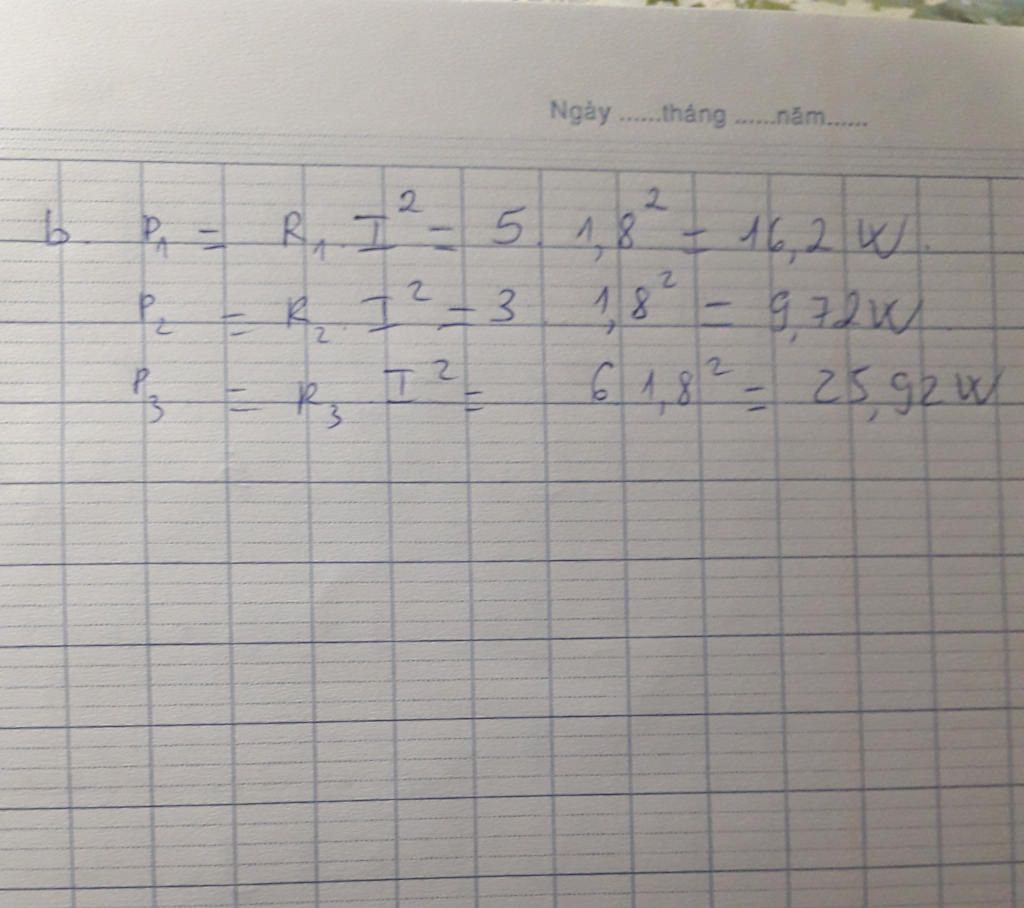 Ngày ......tháng ......năm......
b. P₁ = R₁. I² = 5. 1,8² = 16,2 W.
P₂ = R₂. I² = 3. 1,8² = 9,72 W
P₃ = R₃ I² = 6 1,8² = 25,92 W